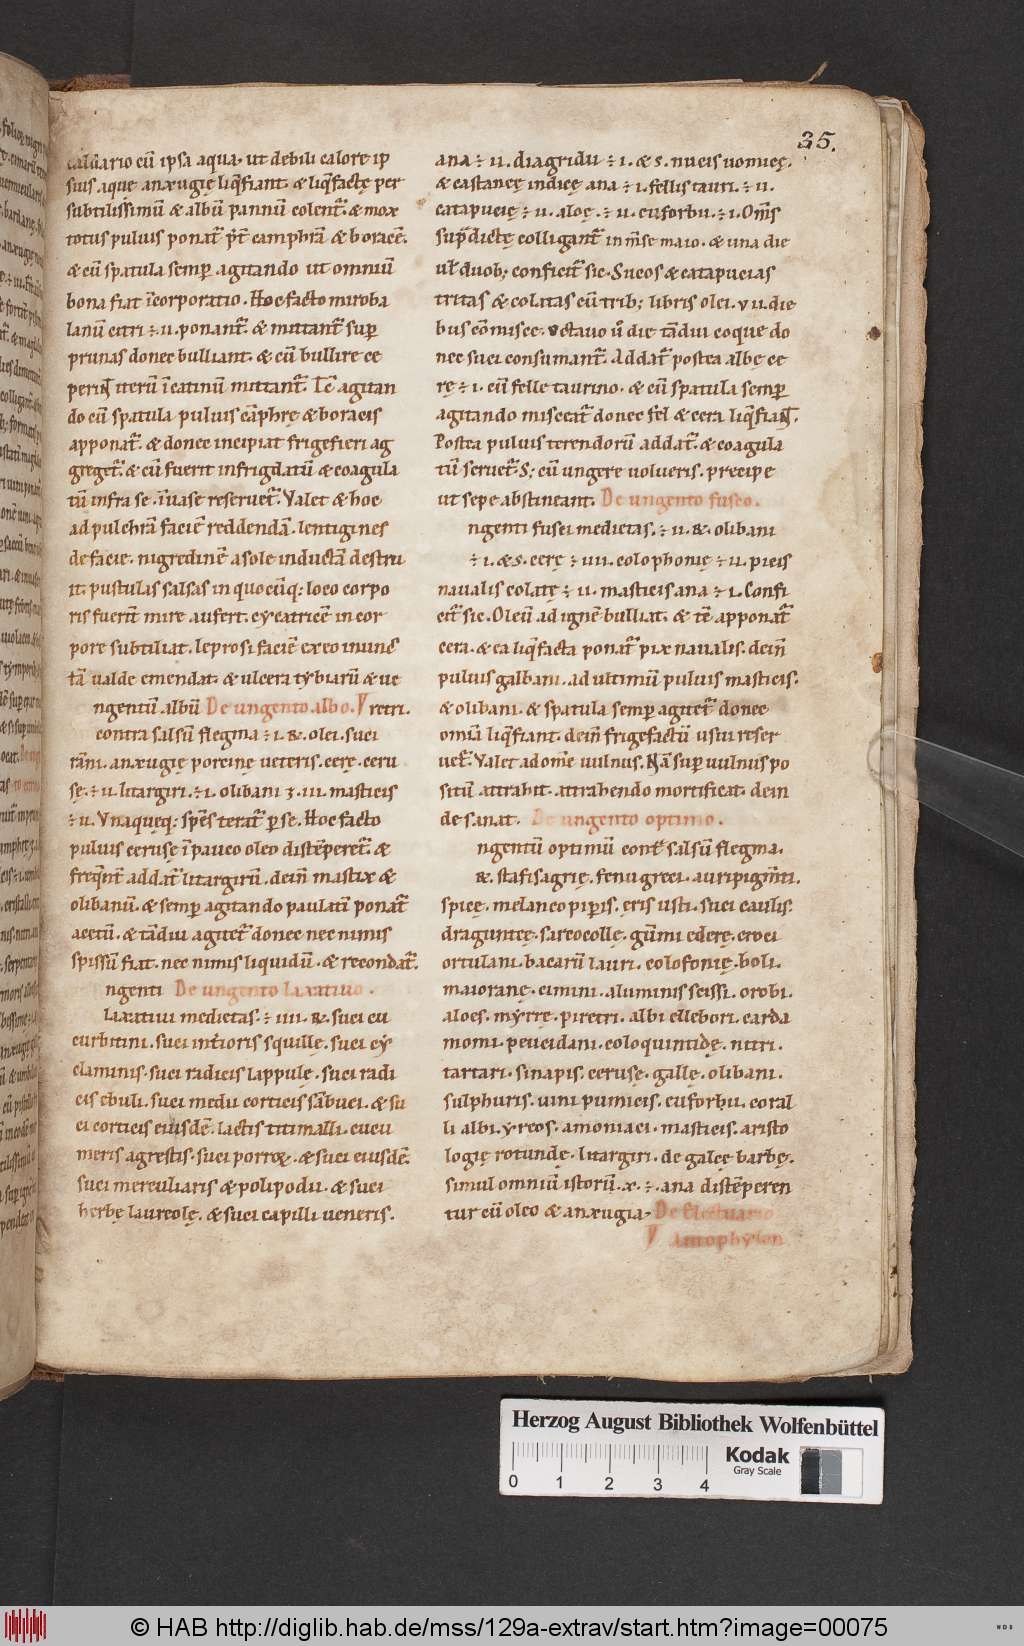 35.
caldario cū ipsa aqua. ut debili calore ip
sius aquę anxugię liq̄fiant. & liq̄factę per
subtilissimū & albū pannū colent᷑. & mox
totus puluis ponat᷑ p̄t camphrā & boracē.
& cū spatula semꝑ agitando ut omniū
bona fiat īcorporatio. Hoc facto miroba
lanū citri ÷ .ii. ponant᷑. & mittant᷑ suꝑ
prunas donec bulliant. & cū bullire ce
perint iterū ī catinū mittant᷑. Tc̄ agitan
do cū spatula puluis cāphrę & boracis
apponat᷑. & donec incipiat frigefieri ag
greget᷑. & cū fuerit infrigdatū & coagula
tū infra se. ī uase reseruet᷑. Valet & hoc
ad pulchrā faciē reddendā. lentigines
de facie. nigredinē a sole inductā destru
it. pustulas salsas in quocūq; loco corpo
ris fuerint mire aufert. cycatricē in cor
pore subtiliat. leprosi faciē ex eo inunc
tā ualde emendat. & ulcera tybiarū & ue
ngentū albū De ungento albo. V retri.
contra salsū flegma ÷ .i. R. olei. suci
rāni. anxugię porcinę ueteris. cerę. ceru
sę. ÷ .ii. litargiri. ÷ .i. olibani ʒ .iii. masticis
÷ .ii. Vnaquęq; sp̄es terat᷑ ꝑ se. Hoc facto
puluis ceruse ī pauco oleo distēperet᷑. &
freq̄nt᷑ addat᷑ litargirū. dein̄ mastix &
olibanū. & semꝑ agitando paulatī ponat᷑
acetū. & tādiu agitet᷑ donec nec nimis
spissū fiat. nec nimis liquidū. & recondat᷑.
ngenti De ungento Laxatiuo.
Laxatiui medietas. ÷ .iiii. R. suci cu
curbitini. suci int̄ioris squillę. suci cy
claminis. suci radicis lappulę. suci radi
cis ebuli. suci medii corticis sābuci. & su
ci corticis eiusdē. lactis titimalli. cucu
meris agrestis. suci porroꝝ. & suci eiusdē.
suci mercuriaris & polipodii. & suci
herbę laureolę. & suci capilli ueneris.
ana ÷ .ii. diagridii ÷ .i. & s. nucis uomicę.
& castaneę indicę ana ÷ .i. fellis tauri. ÷ .ii.
catapucię ÷ .ii. aloę. ÷ .ii. euforbii. ÷ .i. Om̄s
sup̄dictę colligant᷑ in m̄se maio. & una die
uł duob; conficit᷑ sic. Sucos & catapucias
tritas & colitas cū trib; libris olei. vii. die
bus cōmisce. octauo ū die tādiu coque do
nec suci consumant᷑. Addat᷑ postea albę ce
rę ÷ .i. cū felle taurino. & cū spatula semꝑ
agitando misceat᷑ donec fel & cera liq̄fiant.
Postea puluis terendorū addat᷑. & coagula
tū seruet᷑. S; cū ungere uolueris. precipe
ut sepe abstineant. De ungento fusco.
ngenti fusci medietas. ÷ .ii. R. olibani
÷ .i. & s. cerę ÷ .iiii. colophonię ÷ .ii. picis
naualis colatę ÷ .ii. masticis ana ÷ .i. Confi
cit᷑ sic. Oleū ad ignē bulliat. & tc̄ apponat᷑
cera. & ea liq̄facta ponat᷑ pix naualis. dein̄
puluis galbani. ad ultimū puluis masticis.
& olibani. & spatula semꝑ agitet᷑ donec
omīa liq̄fiant. dein̄ frigefactū usui reser
uet᷑. Valet ad om̄e uulnus. Nā suꝑ uulnus po
sitū attrahit. attrahendo mortificat. dein
de sanat. De ungento optimo.
ngentū optimū cont᷑ salsū flegma.
R. stafisagrię. fenugreci. auripigm̄ti.
spicę. melancopiꝑis. ęris usti. suci caulis.
draguntcę. sarcocollę. gūmi ederę. croci
ortulani. bacarū lauri. colofonię. boli.
maioranę. cimini. aluminis scissi. orobi.
aloes. myrrę. piretri. albi ellebori. carda
momi. peucidani. coloquintidę. nitri.
tartari. sinapis. cerusę. gallę. olibani.
sulphuris. uiui pumicis. euforbii. coral
li albi. yreos. amoniaci. masticis. aristo
logię rotundę. litargiri. de galcę barbę.
simul omniū istorū. x. ÷. ana distēperen
tur cū oleo & anxugia. De Electuario
Herzog August Bibliothek Wolfenbüttel
0 1 2 3 4
Kodak
Gray Scale
© HAB http://diglib.hab.de/mss/129a-extrav/start.htm?image=00075